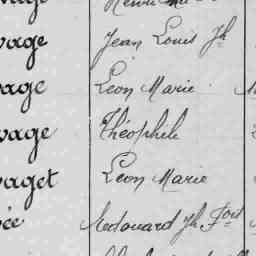 vage Jean Louis Jh
vage Léon Marie
vage Théophile
vaget Léon Marie
ée Medouard Jh Fois